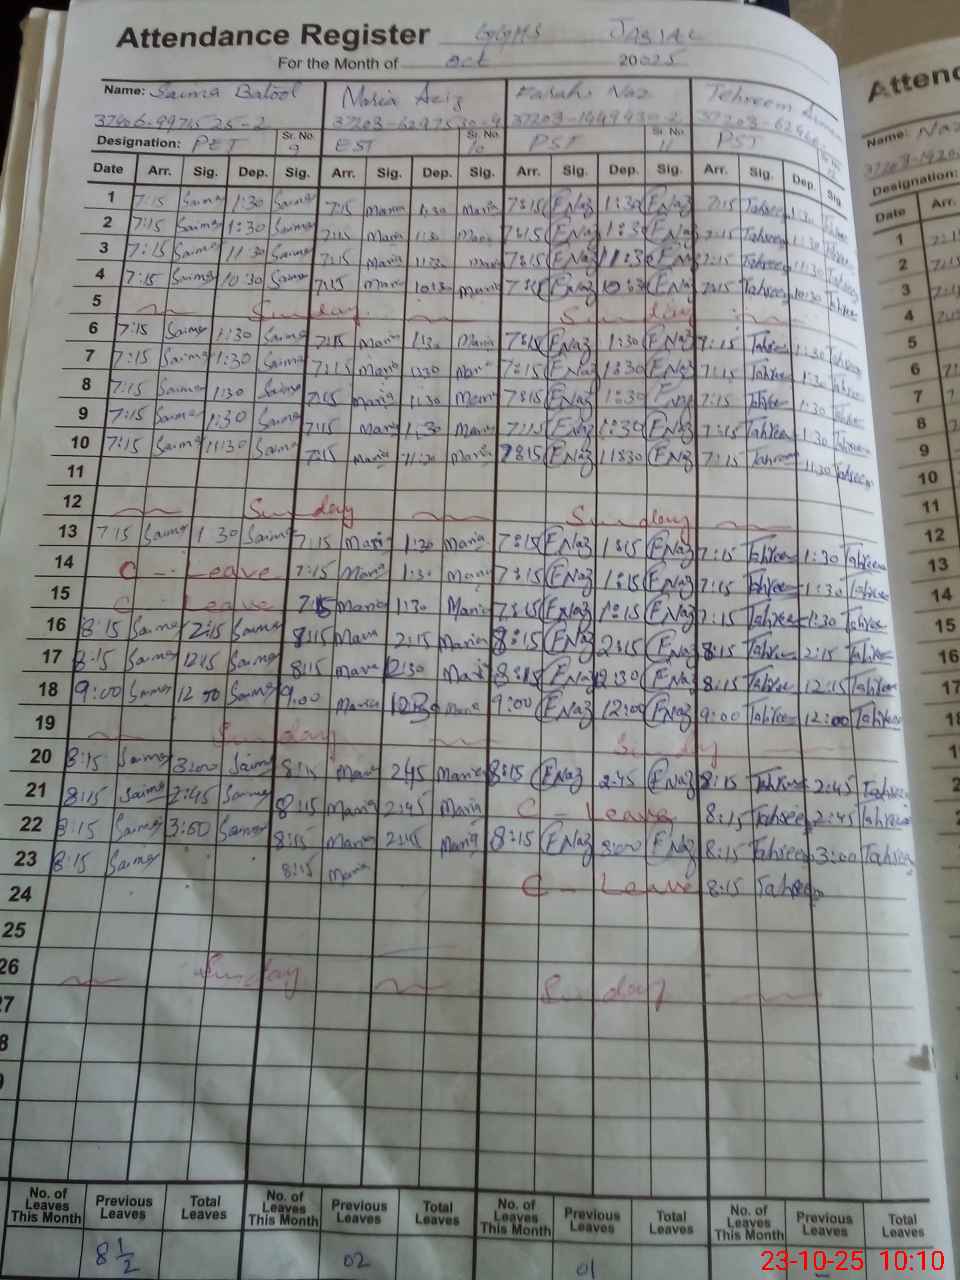 Attendance Register GGHS JASIAL
For the Month of Oct 20025
Name: Saima Batool Maria Aziz Farah Naz Tehreem
Designation: PET Sr. No. 9 EST Sr. No. 10 PST Sr. No. 11 PST
Date Arr. Sig. Dep. Sig. Arr. Sig. Dep. Sig. Arr. Sig. Dep. Sig. Arr. Sig. Dep. Sig.
1 7:15 Saima 1:30 Saima 7:15 Maria 1:30 Maria 7:15 FNaz 1:30 FNaz 7:15 Tahreem 1:30
2 7:15 Saima 1:30 Saima 7:15 Maria 1:30 Maria 7:15 FNaz 1:30 FNaz 7:15 Tahreem 1:30
3 7:15 Saima 11:30 Saima 7:15 Maria 11:30 Maria 7:15 FNaz 11:30 FNaz 7:15 Tahreem 11:30 Tahreem
4 7:15 Saima 10:30 Saima 7:15 Maria 10:30 Maria 7:15 FNaz 10:30 FNaz 7:15 Tahreem 10:30 Tahreem
5 Sunday Sunday
6 7:15 Saima 1:30 Saima 7:15 Maria 1:30 Maria 7:15 FNaz 1:30 FNaz 7:15 Tahreem 1:30 Tahreem
7 7:15 Saima 1:30 Saima 7:15 Maria 1:30 Maria 7:15 FNaz 1:30 FNaz 7:15 Tahreem 1:30 Tahreem
8 7:15 Saima 1:30 Saima 7:15 Maria 1:30 Maria 7:15 FNaz 1:30 FNaz 7:15 Tahreem 1:30 Tahreem
9 7:15 Saima 1:30 Saima 7:15 Maria 1:30 Maria 7:15 FNaz 1:30 FNaz 7:15 Tahreem 1:30 Tahreem
10 7:15 Saima 11:30 Saima 7:15 Maria 11:30 Maria 7:15 FNaz 11:30 FNaz 7:15 Tahreem 11:30 Tahreem
11
12 Sunday Sunday
13 7:15 Saima 1:30 Saima 7:15 Maria 1:30 Maria 7:15 FNaz 1:15 FNaz 7:15 Tahreem 1:30 Tahreem
14 C - Leave 7:15 Maria 1:30 Maria 7:15 FNaz 1:15 FNaz 7:15 Tahreem 1:30 Tahreem
15 C - Leave 7:15 Maria 1:30 Maria 7:15 FNaz 1:15 FNaz 7:15 Tahreem 1:30 Tahreem
16 8:15 Saima 2:15 Saima 8:15 Maria 2:15 Maria 8:15 FNaz 2:15 FNaz 8:15 Tahreem 2:15 Tahreem
17 8:15 Saima 12:15 Saima 8:15 Maria 12:30 Maria 8:15 FNaz 12:30 FNaz 8:15 Tahreem 12:15 Tahreem
18 9:00 Saima 12:00 Saima 9:00 Maria Maria 9:00 FNaz 12:00 FNaz 9:00 Tahreem 12:00 Tahreem
19 Sunday Sunday
20 8:15 Saima 3:00 Saima 8:15 Maria 2:45 Maria 8:15 FNaz 2:45 FNaz 8:15 Tahreem 2:45 Tahreem
21 8:15 Saima 2:45 Saima 8:15 Maria 2:45 Maria C - Leave 8:15 Tahreem 2:45 Tahreem
22 8:15 Saima 3:00 Saima 8:15 Maria 2:45 Maria 8:15 FNaz 3:00 FNaz 8:15 Tahreem 3:00 Tahreem
23 8:15 Saima 8:15 Maria C - Leave 8:15 Tahreem
24
25
26 Sunday Sunday
27
8
No. of Leaves This Month Previous Leaves Total Leaves No. of Leaves This Month Previous Leaves Total Leaves No. of Leaves This Month Previous Leaves Total Leaves No. of Leaves This Month Previous Leaves Total Leaves
8 1/2 02 01
Attend
Name: Naz
Designation:
Date Arr.
1
2
3
4
5
6
7
8
9
10
11
12
13
14
15
16
17
23-10-25 10:10